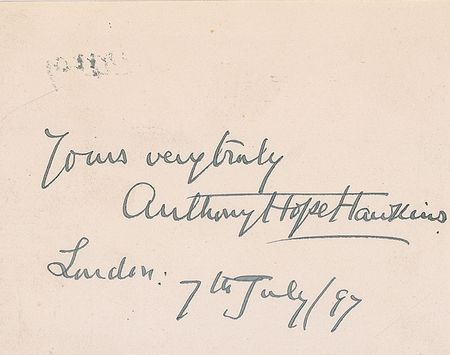 Yours very truly
Anthony Hope Hawkins.
London: 7th July/97